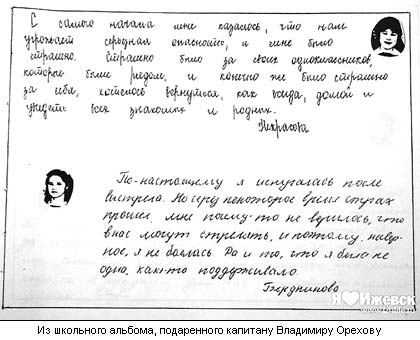 С самого начала мне казалось, что нам
угрожает серьёзная опасность, и мне было
страшно. Страшно было за своих одноклассников,
которые были рядом, и конечно же было страшно
за себя, хотелось вернуться, как всегда, домой и
увидеть всех знакомых и родных.
Некрасова
По-настоящему я испугалась после
выстрела. Но через некоторое время страх
прошел, мне почему-то не верилось, что
в нас могут стрелять, и поэтому, навер-
ное, я не боялась. Да и то, что я была не
одна, как-то поддерживало.
Я ИЖЕВСК
Из школьного альбома, подаренного капитану Владимиру Орехову